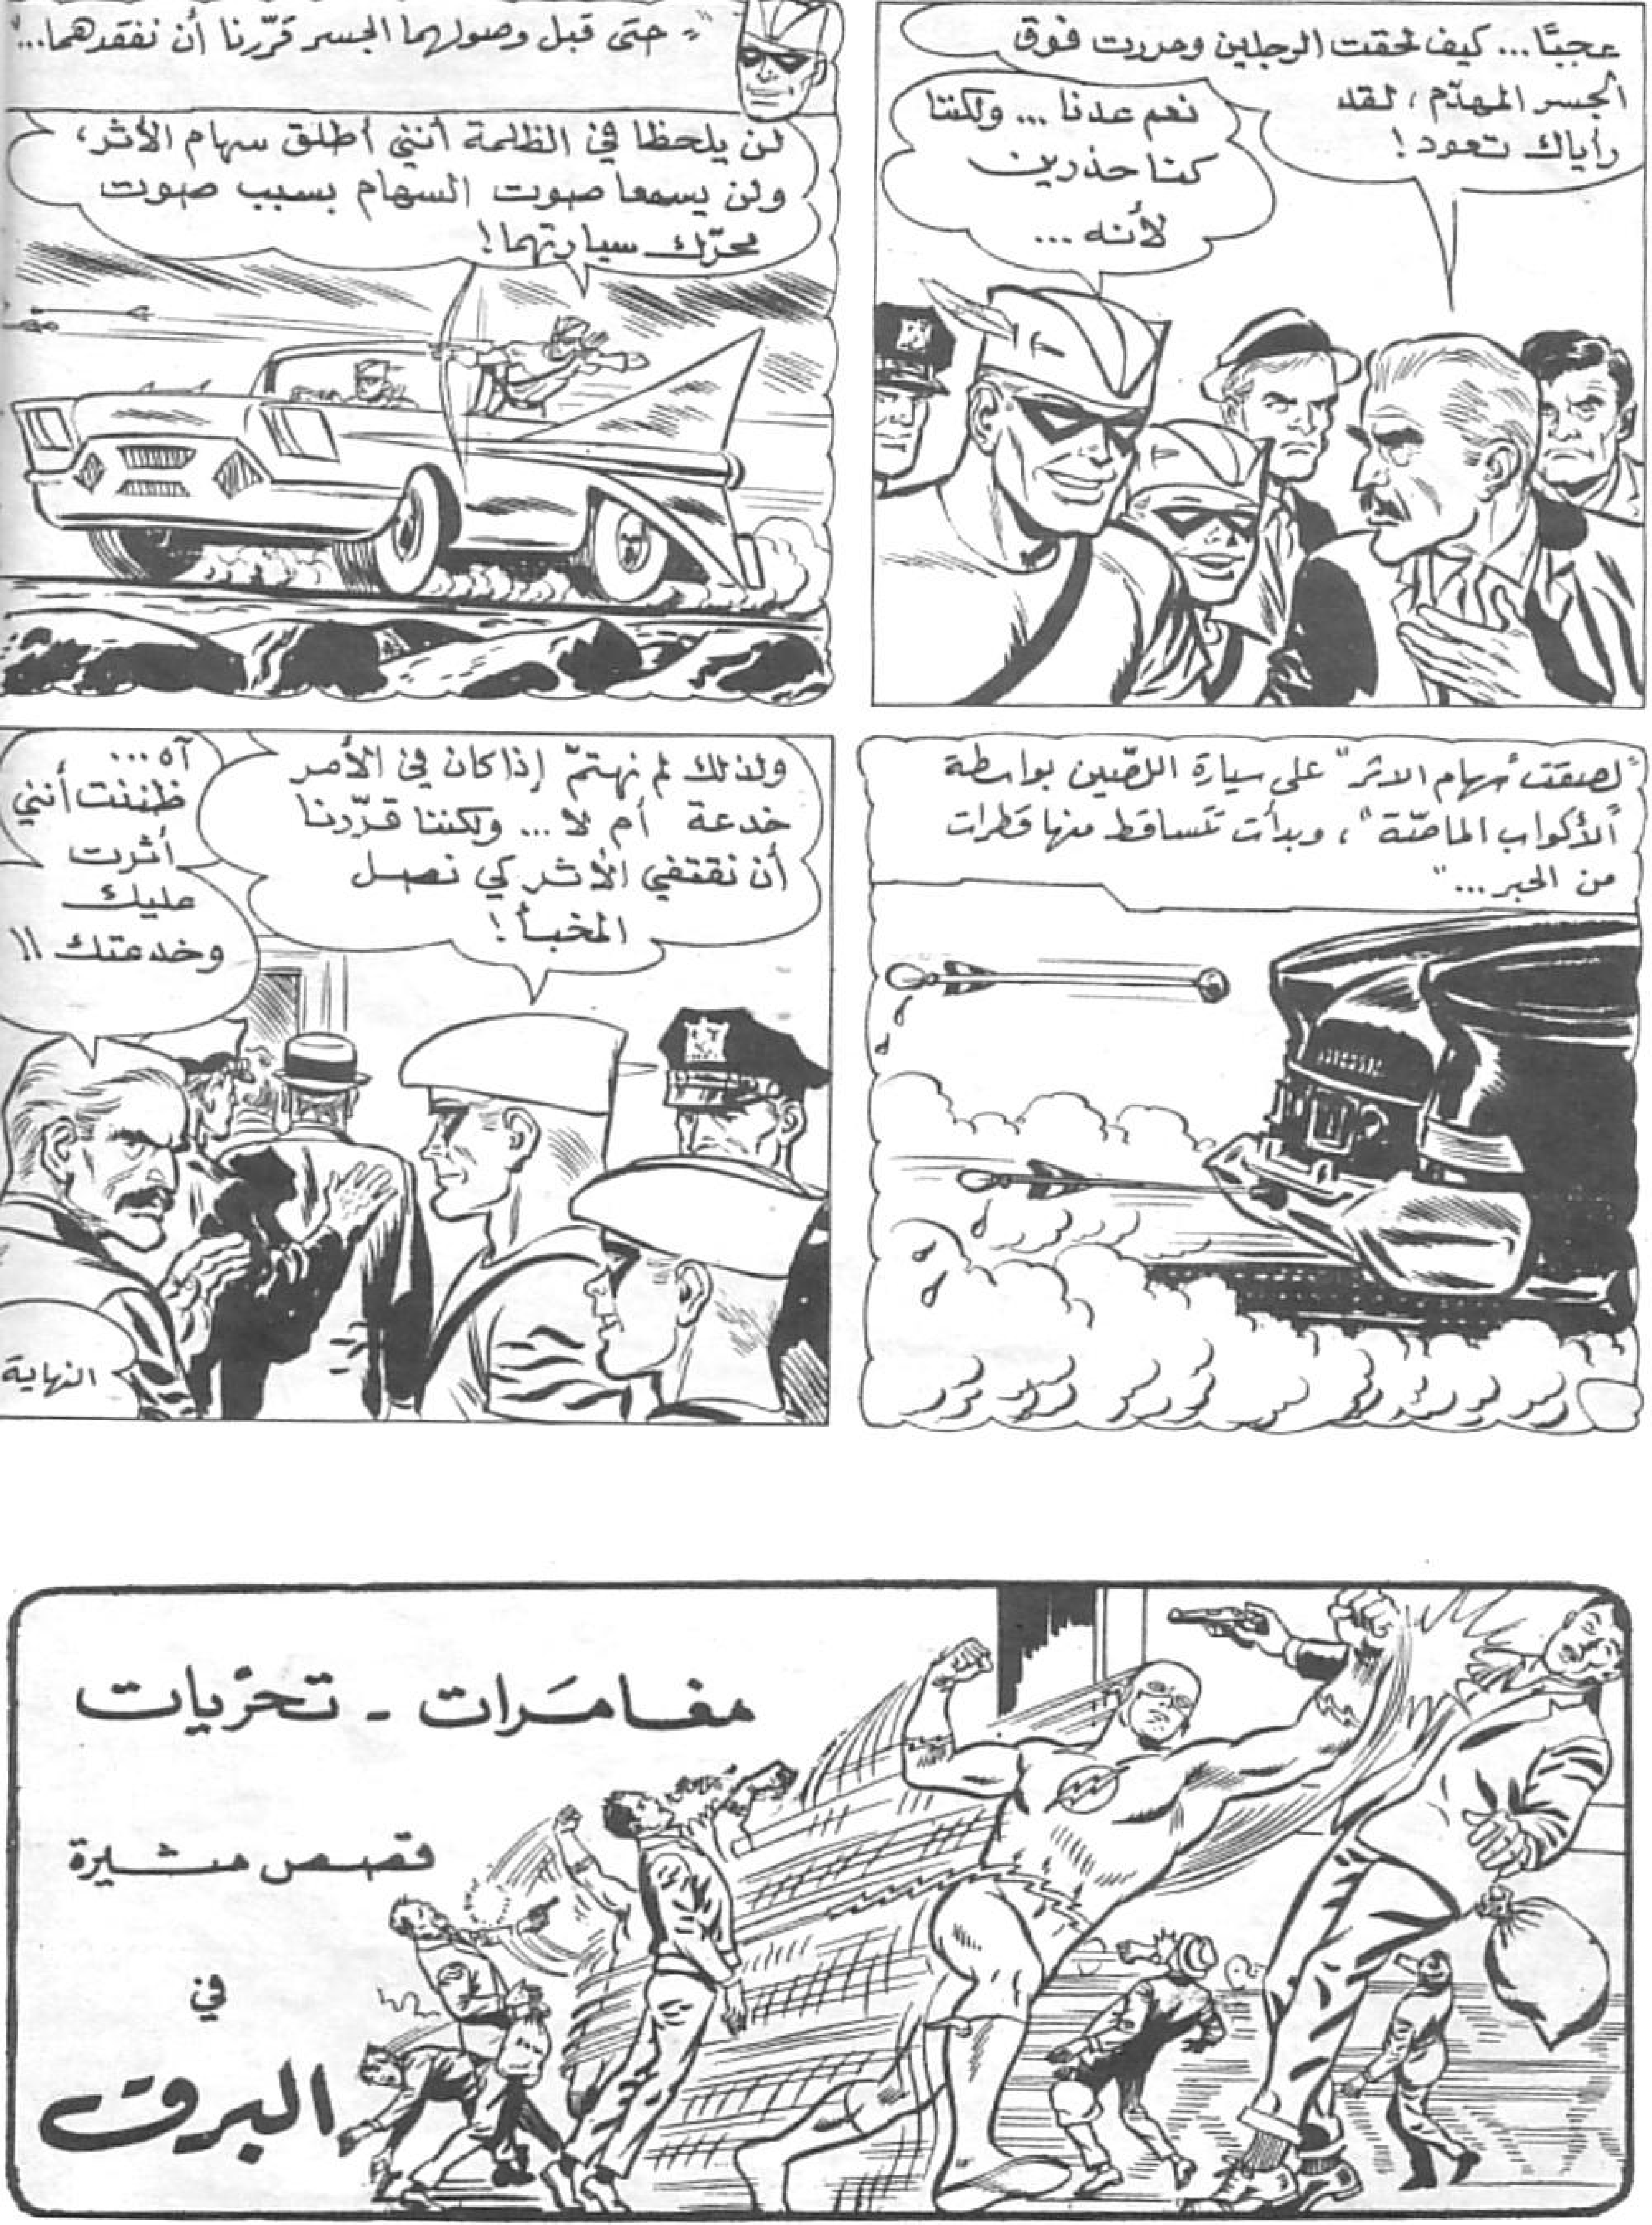 عجبًا... كيف لحقت الرجلين ومررت فوق
الجسر المهدّم، لقد
رأيناك تعود!
نعم عدنا ... ولكننا
كنا حذرين
لأنه ...
"حتى قبل وصولهما الجسر قرّرنا أن نفقدهما..."
لن يلحظا في الظلمة أنني أطلق سهام الأثر،
ولن يسمعا صوت السهام بسبب صوت
محرّك سيارتهما!
"لصقت "سهام الاثر" على سيارة اللصّين بواسطة
"الأكواب الماصّة"، وبدأت تتساقط منها قطرات
من الحبر..."
ولذلك لم نهتمّ إذا كان في الأمر
خدعة أم لا ... ولكننا قرّرنا
أن نقتفي الأثر كي نصل
المخبأ!
آه...
ظننت أنني
أثرت
عليك
وخدعتك !!
النهاية
مغامرات - تحرّيات
قصص مثيرة
في
البرق